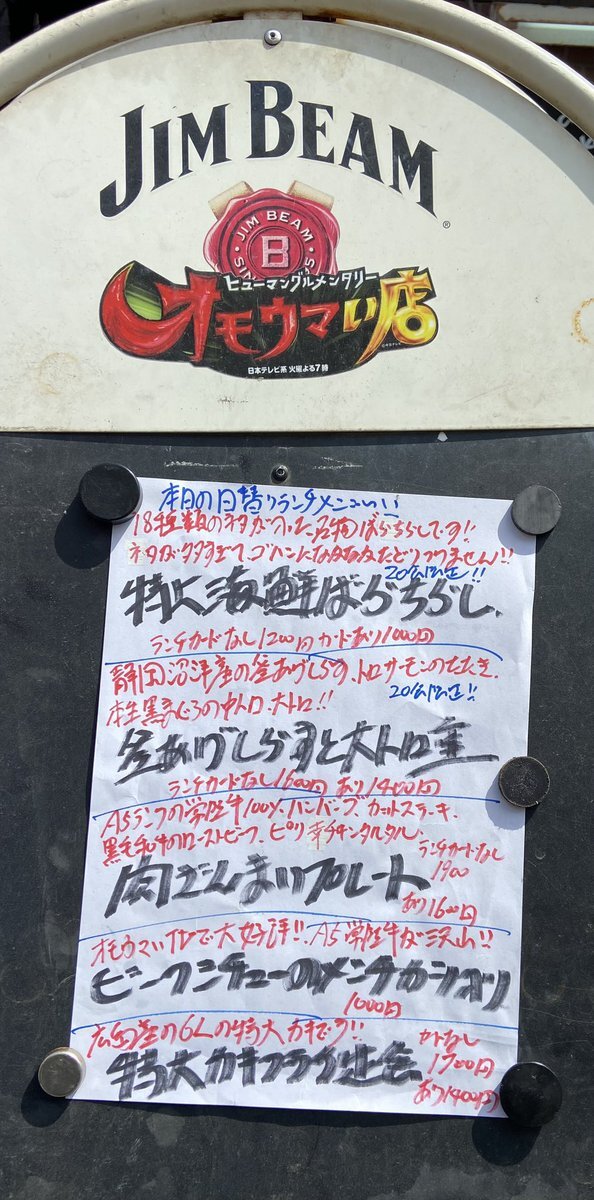 JIM BEAM
JIM BEAM
B
ヒューマングルメンタリー
オモウマい店
日本テレビ系 火曜よる7時
本日の日替りランチメニュー!!
18種類のネタが入った名物ばらちらしです!!
ネタが多すぎて、ゴハンになかなかたどりつけません!!
20食限定!!
特上海鮮ばらちらし
ランチカードなし1200円 カードあり1000円
静岡沼津産の釜あげしらす、トロサーモンのたたき、
本生黒まぐろの中トロ、大トロ!!
20食限定!!
釜あげしらすと大トロ重
ランチカードなし1600円 あり1400円
A5ランクの常陸牛100%ハンバーグ、カットステーキ、
黒毛和牛のローストビーフ、ピリ辛チキンタルタル、
ランチカードなし
1900
肉ざんまいプレート
あり1600円
オモウマいTVで大好評!! A5常陸牛が沢山!!
ビーフシチューのメンチカツ
1000円
広島産の6Lの特大カキです!!
カードなし
1700円
特大カキフライ定食
あり1400円